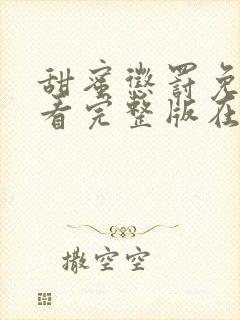 甜蜜惩罚免
看完整版在
撒空空